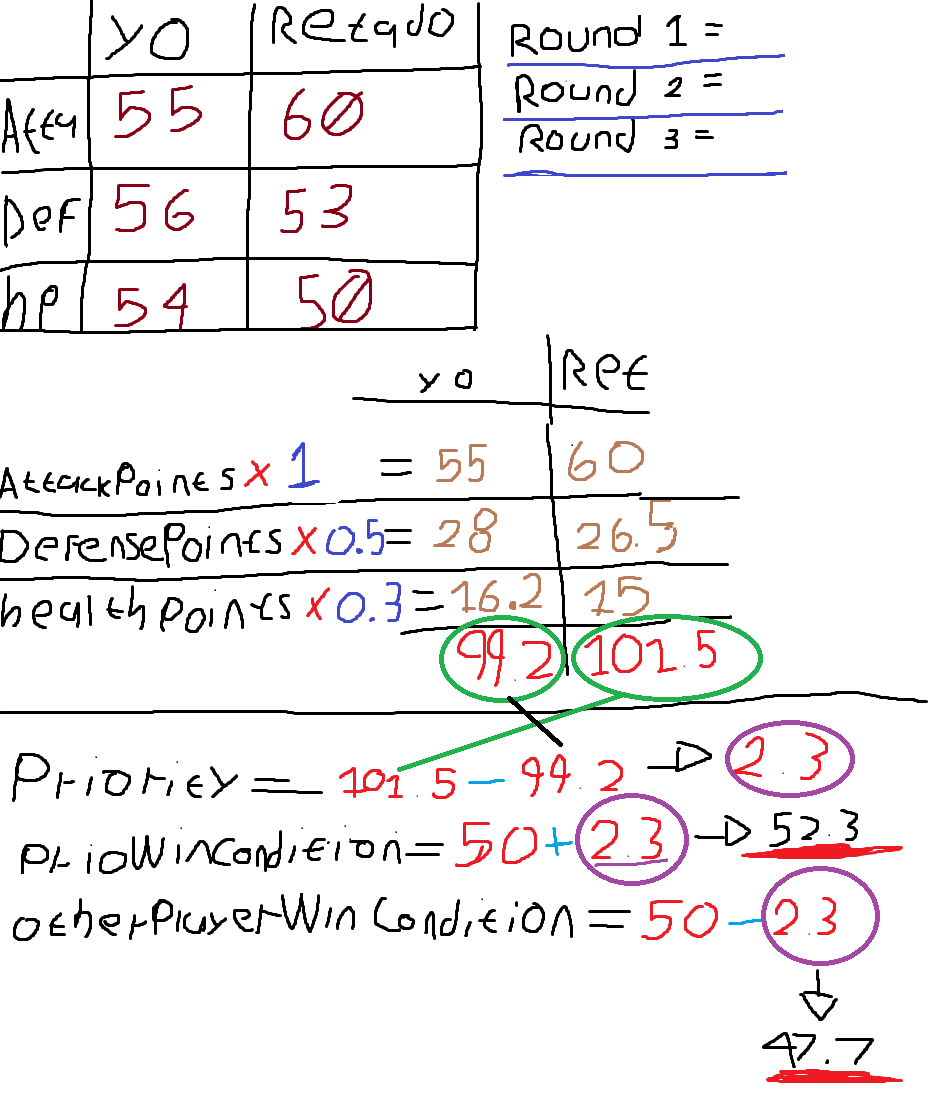 yo Retado
Atta 55 60
Def 56 53
hp 54 50
Round 1 =
Round 2 =
Round 3 =
yo Ret
AttackPoints x 1 = 55 60
DefensePoints x 0.5 = 28 26.5
healthPoints x 0.3 = 16.2 15
99.2 101.5
Priority = 101.5 - 99.2 → 2.3
PrioWinCondition = 50 + 2.3 → 52.3
otherPlayerWinCondition = 50 - 2.3
↓
47.7